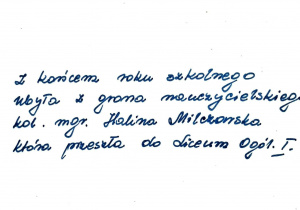 Z końcem roku szkolnego
ubyła z grona nauczycielskiego
kol. mgr. Halina Milczarska
która przeszła do Liceum Ogól. I.